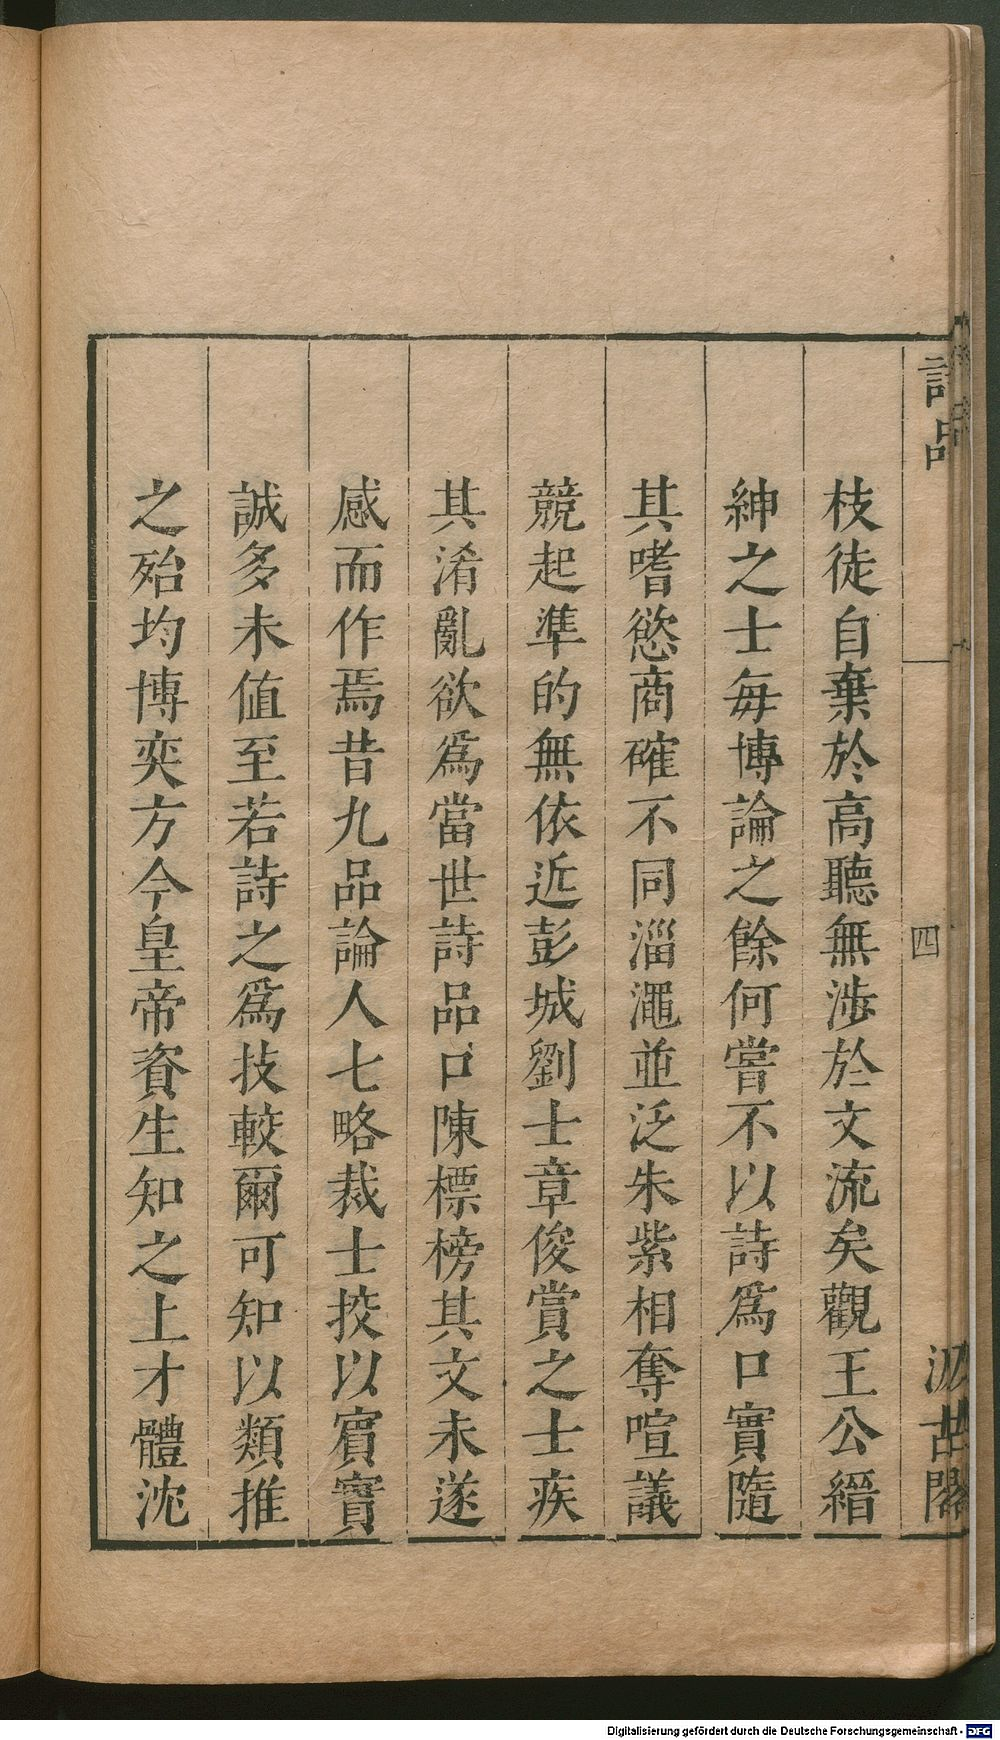 詩品
四
汲古閣
枝徒自棄於高聽無涉於文流矣觀王公縉
紳之士每博論之餘何嘗不以詩爲口實隨
其嗜慾商確不同淄澠並泛朱紫相奪喧議
競起準的無依近彭城劉士章俊賞之士疾
其淆亂欲爲當世詩品口陳標榜其文未遂
感而作焉昔九品論人七略裁士挍以賔實
誠多未值至若詩之爲技較爾可知以類推
之殆均博奕方今皇帝資生知之上才體沈
Digitalisierung gefördert durch die Deutsche Forschungsgemeinschaft - DFG